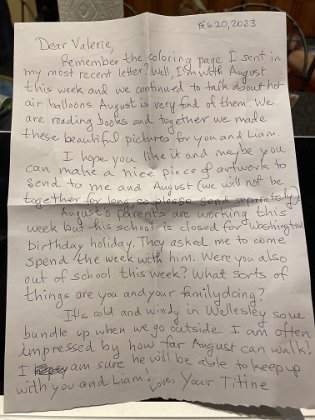 Feb 20, 2023
Dear Valerie,
Remember the coloring page I sent in
my most recent letter? Well, I'm with August
this week and we continued to talk about hot
air balloons. August is very fond of them. We
are reading books and together we made
these beautiful pictures for you and Liam.
I hope you like it and maybe you
can make a nice piece of artwork to
send to me and August (we will not be
together for long, so please send separately)
August's parents are working this
week but his school is closed for Washington
birthday holiday. They asked me to come
spend the week with him. Were you also
out of school this week? What sorts of
things are you and your family doing?
It is cold and windy in Wellesley so we
bundle up when we go outside. I am often
impressed by how far August can walk!
I am sure he will be able to keep up
with you and Liam! Love, Your Titine